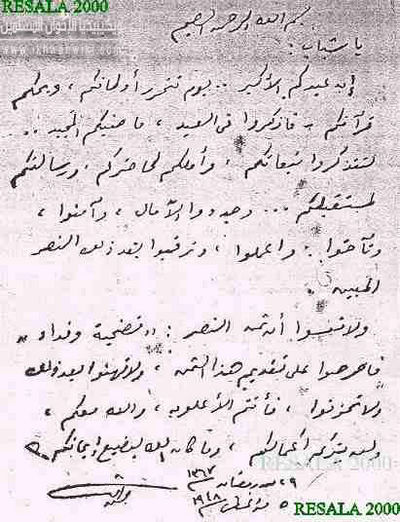 RESALA 2000
ويكيبيديا الإخوان المسلمين
www.ikhwanwiki.com
بسم الله الرحمن الرحيم
يا شباب :
إن عيدكم الأكبر .. يوم تتحرر أوطانكم ، ويحكم
قرآنكم .. فاذكروا فى العيد ، ماضيكم المجيد ..
لتتذكروا تبعاتكم ، وأملكم لحاضركم ، ورسالتكم
لمستقبلكم ... وجددوا الآمال ، وآمنوا ،
وتآخوا .. واعملوا ، وترقبوا بعد ذلك النصر
المبين .
ولا تنسوا أن ثمن النصر : " تضحية وفداء "
فاحرصوا على تقديم هذا الثمن ، ولا تهنوا بعد ذلك
ولا تحزنوا ، فأنتم الأعلون ، والله معكم ،
ولن يتركم أعمالكم ، وما كان الله ليضيع إيمانكم
RESALA 2000
٢٩ من رمضان ١٣٦٧
٥ من أغسطس ١٩٤٨
RESALA 2000